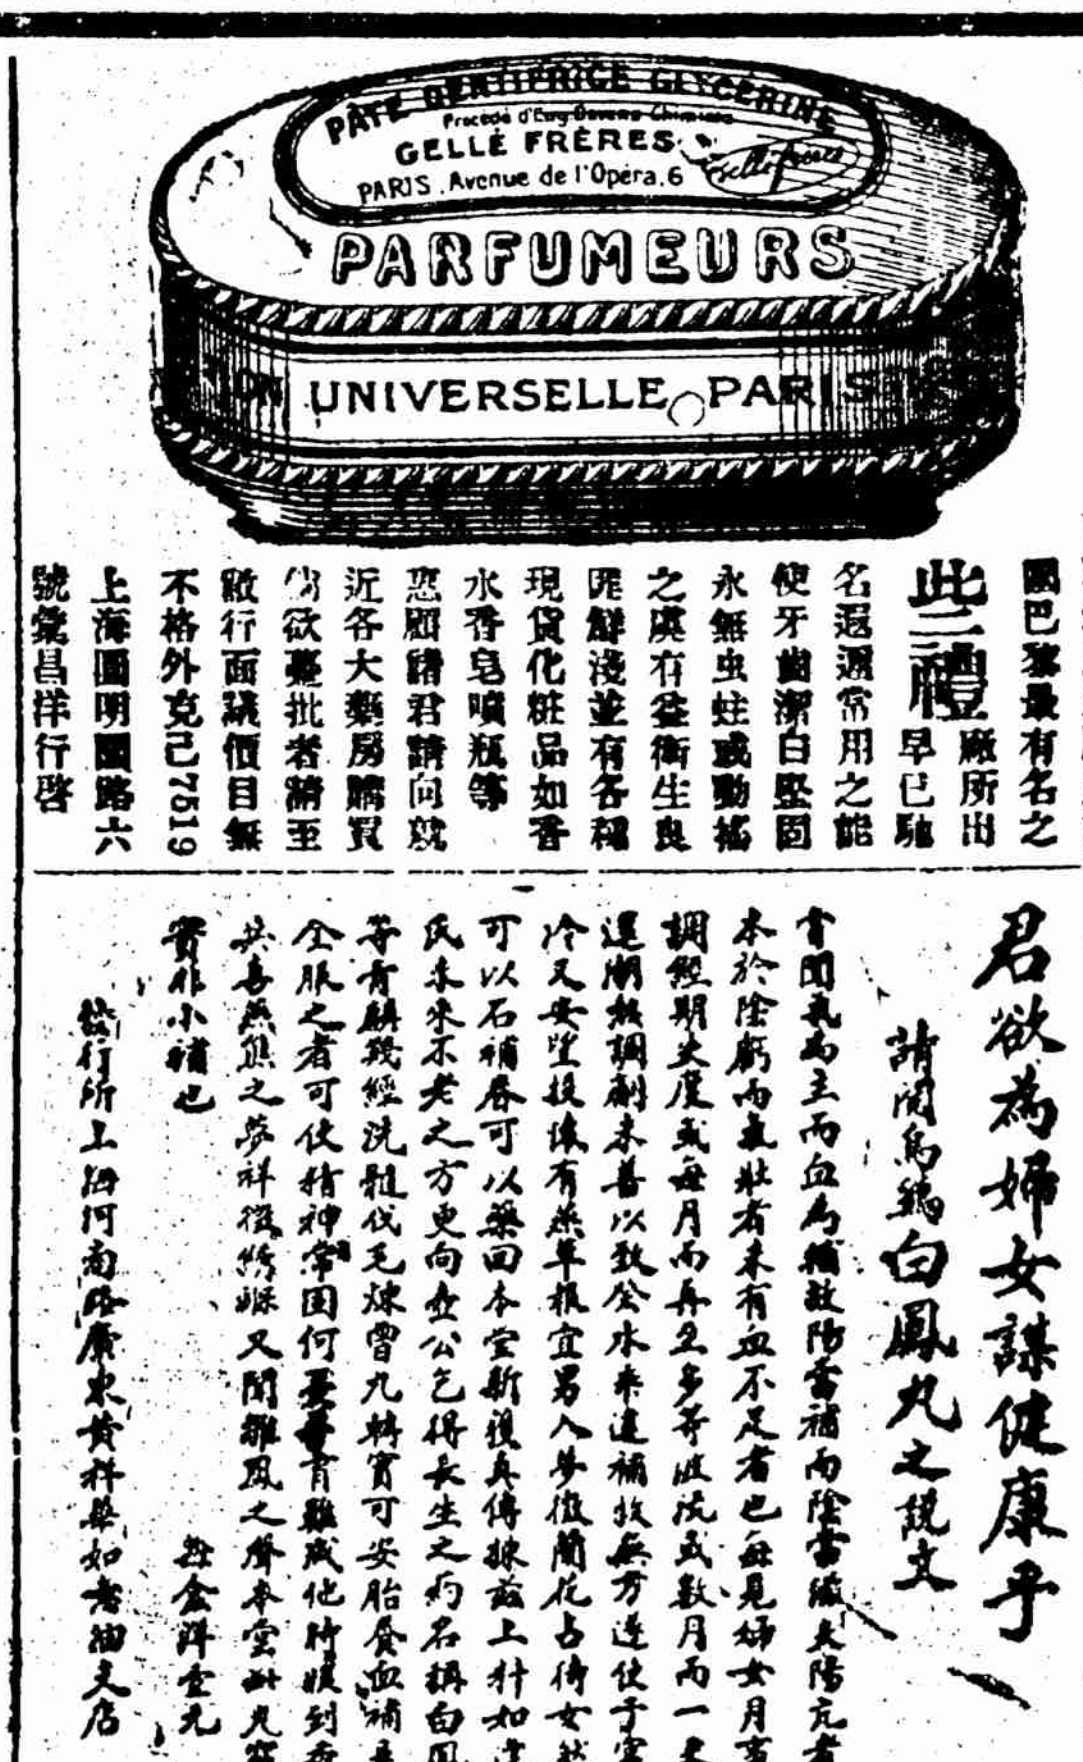 PÂTE DENTIFRICE GLYCÉRINE
Procédé d'Eug Devers Chimiste
GELLÉ FRÈRES
PARIS. Avenue de l'Opéra. 6
Gellé frères
PARFUMEURS
ON UNIVERSELLE PARIS
國巴黎最有名之
此三禮
廠所出
早已馳
名遐邇常用之能
使牙齒潔白堅固
永無虫蛀或動搖
之虞有益衛生良
匪鮮淺並有各種
現貨化粧品如香
水香皂噴瓶等
惠顧諸君請向就
近各大藥房購買
倘欲躉批者請至
敝行面議價目無
不格外克己7519
上海圓明園路六
號彙昌洋行啓
君欲為婦女謀健康乎
請閱烏鷄白鳳丸之說文
甞聞氣為主而血為輔故陽當補而陰當滋夫陽亢者
本於陰虧而氣壯者未有血不足者也每見婦女月事
調經期失度或每月而再至多等波流或數月而一
還潮熱調劑未善以致金水來違補救無方遂使子宮
冷又安望投懷有燕草根宜男入夢徵蘭花占待女
可以石補唇可以藥回本堂新獲真傳
氏朱來不老之方更向壺公乞得長生之葯名稱白鳳
等骨髓幾經洗髓伐毛煉曾九轉實可安胎養血補
全服之者可使精神常固何
共喜熊羆之夢祥徵綉褓又聞雛鳳之聲本堂
實非小補也
每盒洋壹元
發行所上海河南路廣東黃祥華如意油支店